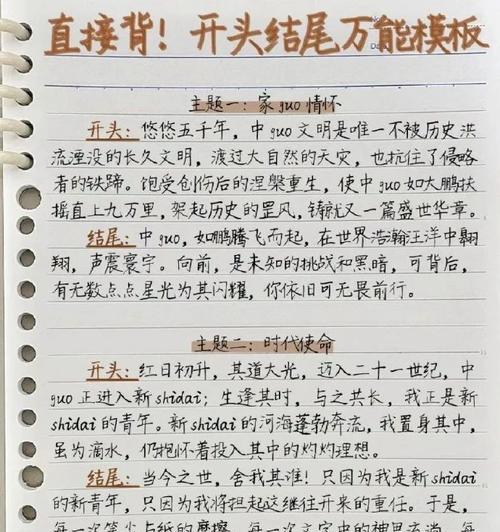 直接背！开头结尾万能模板
主题一：家guo情怀
开头：悠悠五千年，中guo文明是唯一不被历史洪
流湮没的长久文明，渡过大自然的天灾，也抗住了侵略
者的铁蹄。饱受创伤后的涅槃重生，使中guo如大鹏扶
摇直上九万里，架起历史的罡风，铸就又一篇盛世华章。
结尾：中guo，如鹏腾飞而起，在世界浩瀚汪洋中翱
翔，声震寰宇。向前，是未知的挑战和黑暗，可背后，
有无数点点星光为其闪耀，你依旧可无畏前行。
主题二：时代使命
开头：红日初升，其道大光，迈入二十一世纪，中
guo正进入新shidai；生逢其时，与之共长，我正是新
shidai的青年。新shidai的河海蓬勃奔流，我置身其中，
虽为滴水，仍抱怀着投入其中的灼灼理想。
结尾：当今之世，舍我其谁！只因为我是新shidai
的新青年，只因为我将担起这继往开来的重任。于是，
每一次笔尖与纸的摩擦，每一次文字中的